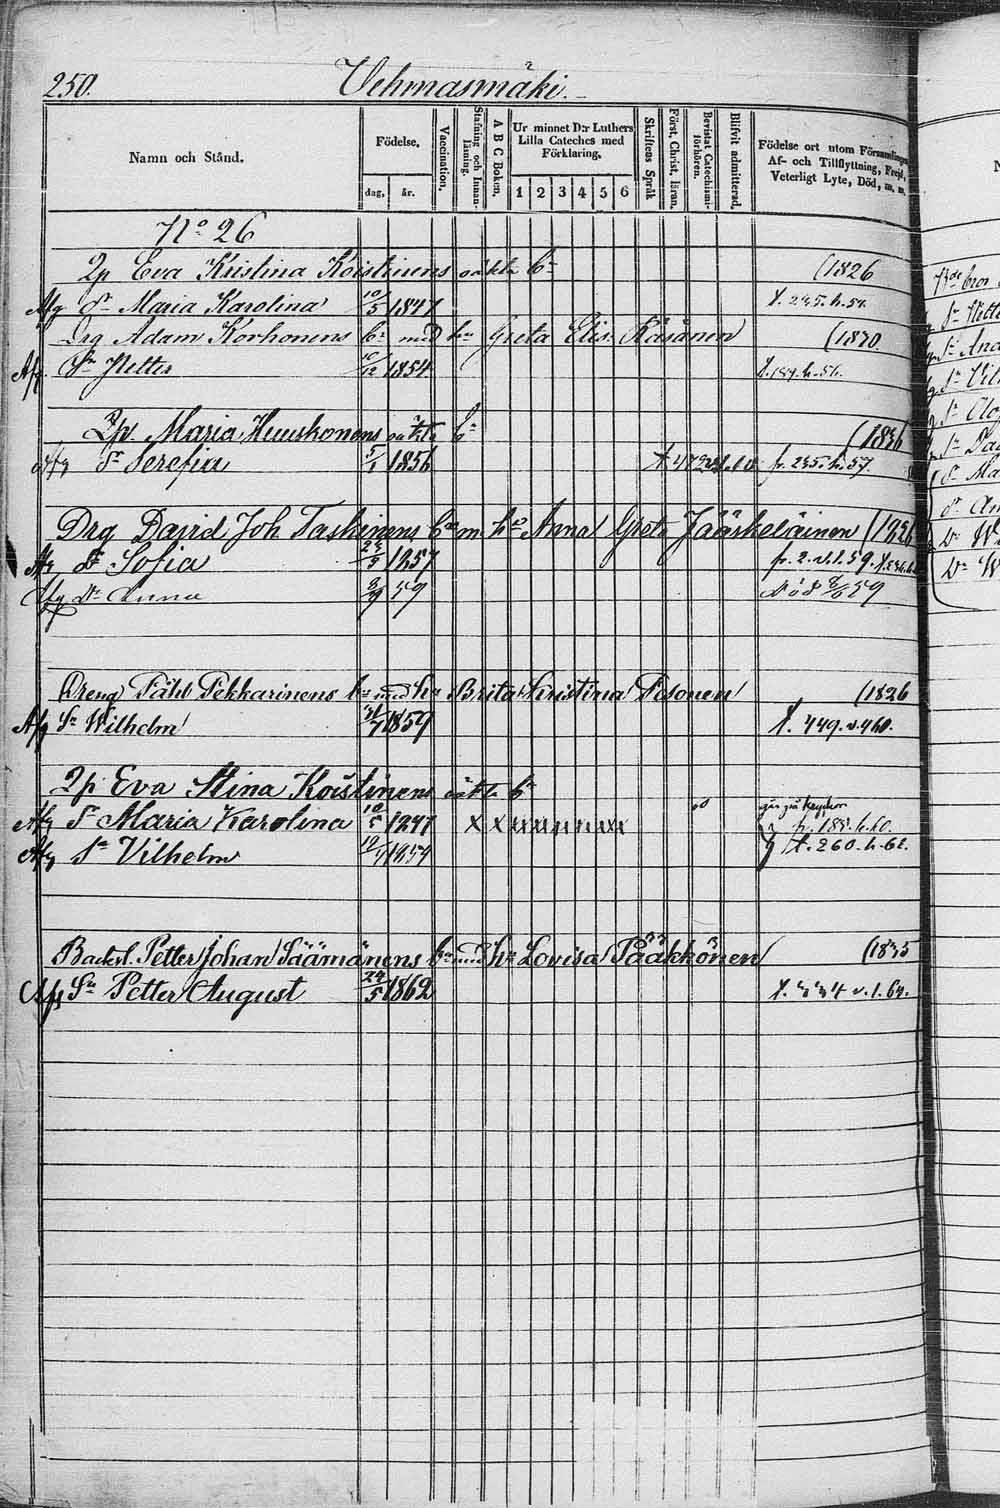 250. Vehmasmäki.
Namn och Stånd.
Födelse.
dag. år.
Vaccination.
Stafning och Innan-läsning.
A B C Boken.
Ur minnet D:r Luthers
Lilla Cateches med
Förklaring.
1 2 3 4 5 6
Skriftens Språk
Först. Christ. läran.
Bevistat Catechismi-förhören.
Blifvit admitterad.
Födelse ort utom Församlingen
Af- och Tillflyttning, Frejd,
Veterligt Lyte, Död, m. m.
No 26
Qp Eva Kristina Koistinens oäkta bn (1826
Afg dr Maria Karolina 10/5 1847 t. 245. h. 54.
Drg Adam Korhonens bn med hu Greta Elis. Räsänen (1830
Afg. Sn Petter 10/12 1854 t. 189. h. 56.
Qp. Maria Huuskonens oäkta bn (1836
Afg dr Serefia 5/1 1856 fr. 235. h. 57
Drg David Joh Taskinens bn m. hu Anna Greta Jääskeläinen (1826
Afg dr Sofia 23/5 1857 fr. 2. v. 1. 59.
Afg dr Anna 8/9 59 död 8/6 59
Dreng Påhl Pekkarinens bn med hu Brita Kristina Pisonen (1826
Afg Sn Wilhelm 31/7 1859 t. 449. v. 460.
Qp Eva Stina Koistinens oäkta bn
Afg dr Maria Karolina 10/5 1847 x x fr. 188. h. 60.
Afg Sn Vilhelm 1859 t. 260. h. 62.
Backst. Petter Johan Säämänens bn med hu Lovisa Pääkkönen (1835
Afg Sn Petter August 24/5 1862 t. 334 v. 1. 64.